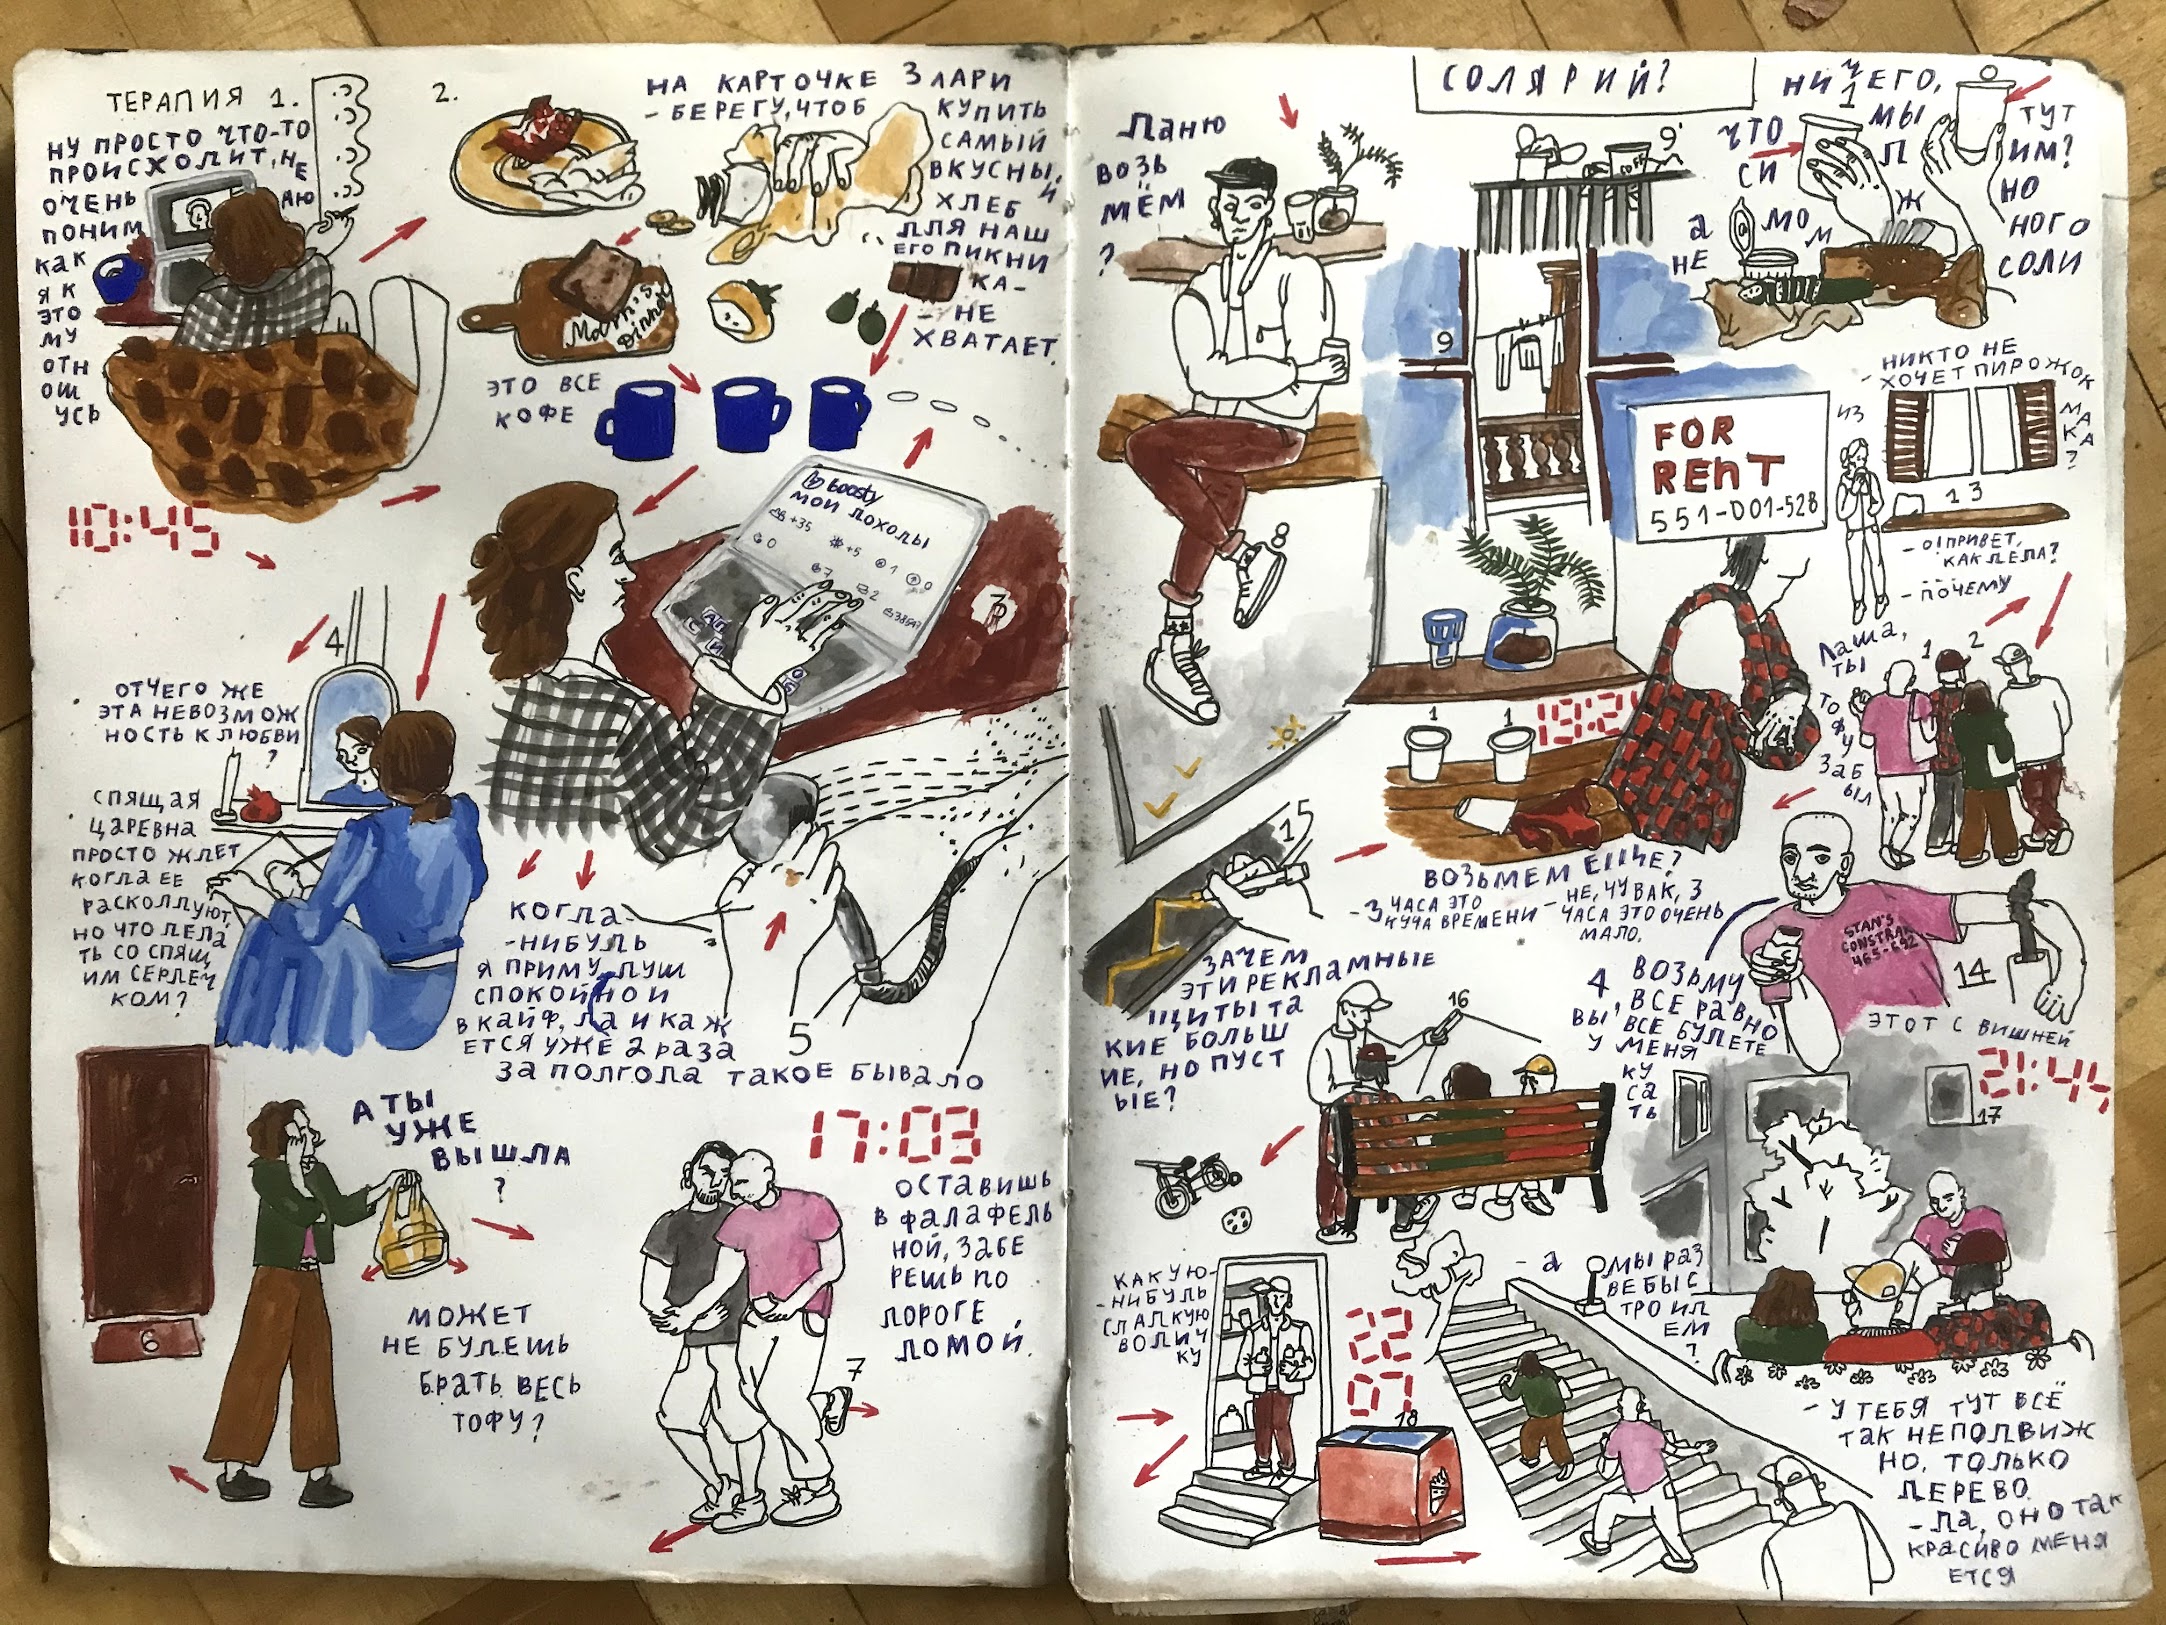 ТЕРАПИЯ 1.
НУ ПРОСТО ЧТО-ТО
ПРОИСХОДИТ, НЕ
ОЧЕНЬ
ПОНИМ
АЮ
КАК
Я К
ЭТО
МУ
ОТН
ОШ
УСЬ
10:45
2.
НА КАРТОЧКЕ 3 ЛАРИ
- БЕРЕГУ, ЧТОБ
КУПИТЬ
САМЫЙ
ВКУСНЫ
Й
ХЛЕБ
ДЛЯ НАШ
ЕГО ПИКНИ
КА -
- НЕ
ХВАТАЕТ.
Mom's
Dinner
ЭТО ВСЕ
КОФЕ
boosty
МОИ ДОХОДЫ
+35
+5
1
0
0
7
2
3
4
ОТЧЕГО ЖЕ
ЭТА НЕВОЗМОЖ
НОСТЬ К ЛЮБВИ
?
СПЯЩАЯ
ЦАРЕВНА
ПРОСТО ЖДЕТ
КОГДА ЕЕ
РАСКОЛДУЮТ,
НО ЧТО ДЕЛА
ТЬ СО СПЯЩ
ИМ СЕРДЕЧ
КОМ?
КОГДА-
-НИБУДЬ
Я ПРИМУ ДУШ
СПОКОЙНО И
В КАЙФ, ДА И КАЖ
ЕТСЯ УЖЕ 2 РАЗА
ЗА ПОЛГОДА ТАКОЕ БЫВАЛО
5
6
А ТЫ
УЖЕ
ВЫШЛА
?
МОЖЕТ
НЕ БУДЕШЬ
БРАТЬ ВЕСЬ
ТОФУ?
17:03
ОСТАВИШЬ
В ФАЛАФЕЛЬ
НОЙ, ЗАБЕ
РЕШЬ ПО
ДОРОГЕ
ДОМОЙ.
7
ДАНЮ
ВОЗЬ
МЁМ
?
8
СОЛЯРИЙ?
9'
9
НИЧЕГО,
МЫ
ЧТО
ТУТ
СИ
Л
ИМ?
Ж
НО
А
МОМ
НОГО
НЕ
СОЛИ
FOR
RENT
551-001-528
- НИКТО НЕ
ХОЧЕТ ПИРОЖОК
ИЗ
МАКА?
13
- О! ПРИВЕТ,
КАК ДЕЛА?
- ПОЧЕМУ
САША,
ТЫ
ТО
ФУ
ЗАБ
ЫЛ
1
2
1
1
19:2
ВОЗЬМЕМ ЕЩЕ?
- 3 ЧАСА ЭТО
КУЧА ВРЕМЕНИ
- НЕ, ЧУВАК, 3
ЧАСА ЭТО ОЧЕНЬ
МАЛО.
STAN'S
CONSTRAK
465-692
14
ЭТОТ С ВИШНЕЙ
4 ВОЗЬМУ
, ВСЕ РАВНО
ВЫ ВСЕ БУДЕТЕ
У МЕНЯ
КУ
СА
ТЬ
15
ЗАЧЕМ
ЭТИ РЕКЛАМНЫЕ
ЩИТЫ ТА
КИЕ БОЛЬШ
ИЕ, НО ПУСТ
ЫЕ?
16
21:44
17
КАКУЮ-
-НИБУДЬ
СЛАДКУЮ
ВОДИЧ
КУ
22
07
18
- А
МЫ РАЗ
ВЕ БЫС
ТРО ИД
ЕМ
?
- У ТЕБЯ ТУТ ВСЁ
ТАК НЕПОДВИЖ
НО, ТОЛЬКО
ДЕРЕВО
- ДА, ОНО ТАК
КРАСИВО МЕНЯ
ЕТСЯ